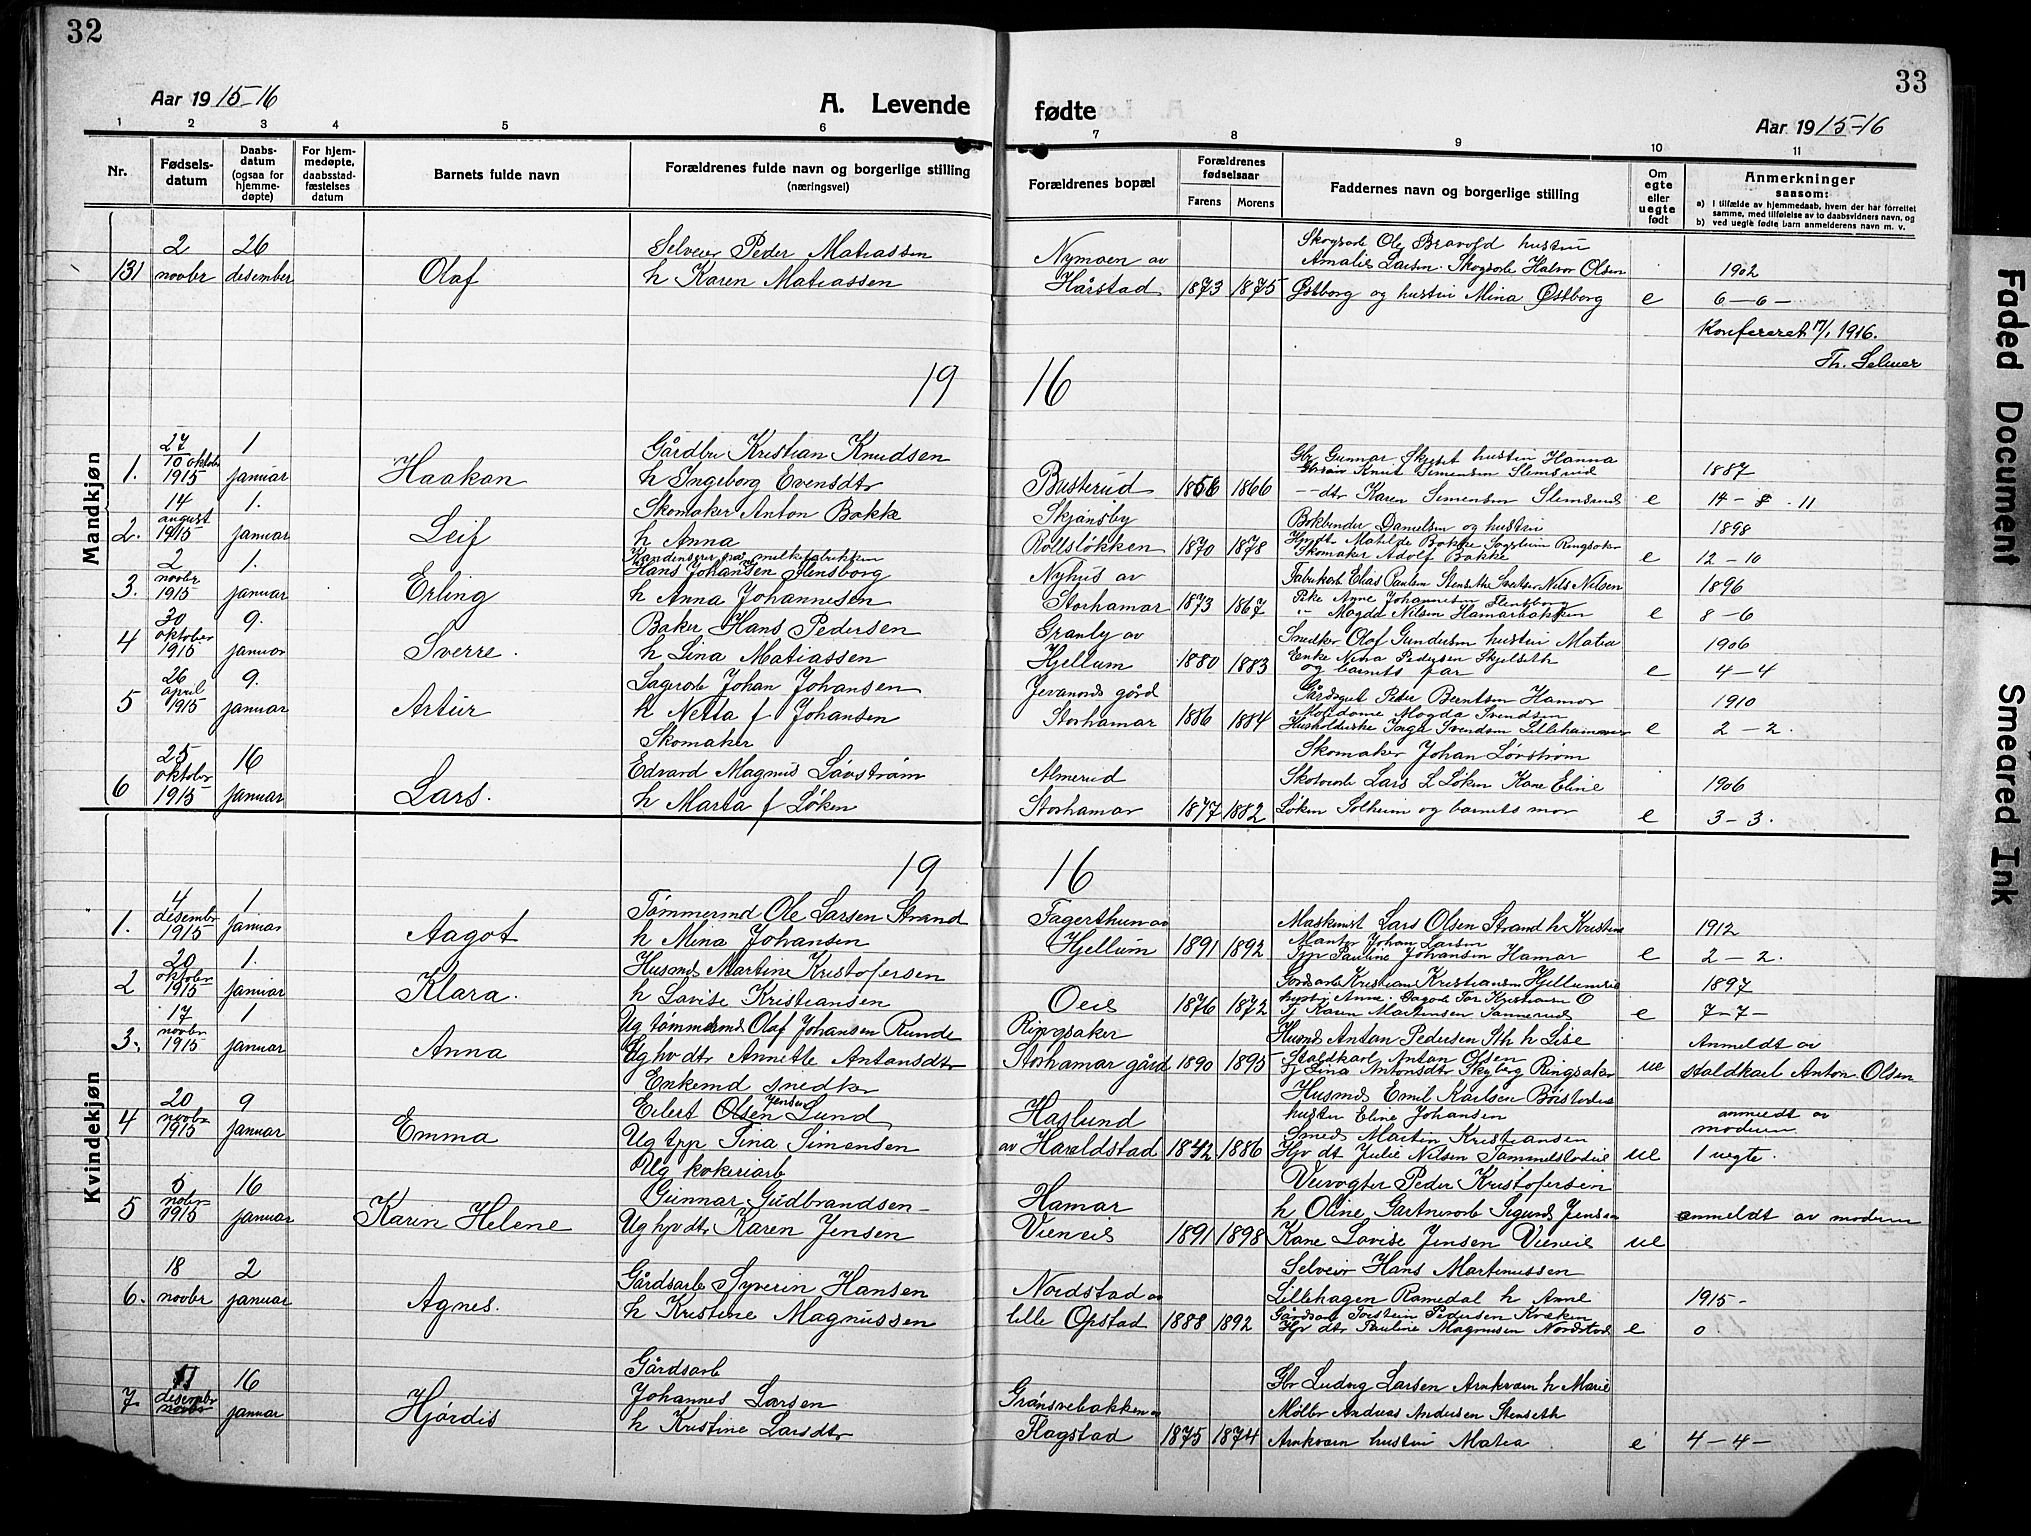 32
33
Aar 1915-16
A. Levende
fødte
Aar 1915-16
1 2 3 4 5 6 7 8 9 10 11
Nr.
Fødsels-
datum
Daabs-
datum
(ogsaa for
hjemme-
døpte)
For hjem-
medøpte,
daabsstad-
fæstelses
datum
Barnets fulde navn
Forældrenes fulde navn og borgerlige stilling
(næringsvei)
Forældrenes bopæl
Forældrenes
fødselsaar
Farens Morens
Faddernes navn og borgerlige stilling
Om
egte
eller
uegte
født
Anmerkninger
saasom:
a) I tilfælde av hjemmedaab, hvem der har forrettet
samme, med tilføielse av to daabsvidners navn, og
b) ved uegte fødte barn anmelderens navn m. v.
Mandkjøn
131
2
novbr
26
desember
Olaf
Selveier Peder Matiassen
h Karen Matiassen
Nymoen av
Hårstad
1873 1875
Skogsarb Ole Bravold hustru
Amalie Larsen. Skogsarb Halvor Olsen
Østborg og hustru Mina Østborg
e
1902
6-6-
Konfereret 17/1 1916.
Th. Selmer
19 16
1.
27
10 oktobr
1915
1
januar
Haakon
Gårdbr Kristian Knudsen
h Ingeborg Evensdtr
Busterud
1856 1866
Gbr Gunnar Skjeset hustru Hanna
Knut Simensen Slemsrud
--dtr Karen Simensen Slemsrud
e
1887
14-8-11
2.
14
august
1915
1.
januar
Leif
Skomaker Anton Bakke
h Anna
Skjønsby
Rollsløkken
1870 1878
Bokbinder Danielsen og hustru
Hjvdtr Matilde Bakke Ringsaker
Skomaker Adolf Bakke
e
1898
12-10
3.
2
novbr
1915
1.
januar
Erling
Kondenserer på melkefabrikken
Hans Johansen Flensborg
h Anna Johannesen
Nyhus av
Storhamar
1873 1867
Fabrikarb Elias Paulsen Stenseth Nils Nilsen
Pike Anne Johannesen Flensborg
-"- Magda Nilsen Hamarbakken
e
1896
8-6
4
30
oktober
1915
9.
januar
Sverre.
Baker Hans Pedersen
h Lina Matiassen
Granly av
Hjellum
1880 1883
Snedker Olaf Gundersen hustru Matea
Enke Nina Pedersen Skjelseth
og barnets far
e
1906
4-4
5
26
april
1915
9.
januar
Artur
Sagarb Johan Johansen
h Netta f Johansen
Jevanords gård
Storhamar
1886 1884
Gårdsgut Peder Berntsen Hamar
Motedame Magda Svendsen
Husholderske Inga Svendsen Lillehammer
e
1910
2-2.
6
25
oktober
1915
16
januar
Lars.
Skomaker
Edvard Magnus Løvstrøm
h Marta f Løken
Almerud
Storhamar
1877 1882
Skomaker Johan Løvstrøm
Skotøiarb Lars L Løken Kone Eline
Løken Solheim og barnets mor
e
1906
3-3.
Kvindekjøn
19 16
1.
4
desembr
1915
1
januar
Aagot
Tømmermd Ole Larsen Strand
h Mina Johansen
Fagerthun av
Hjellum
1891 1892
Maskinist Lars Olsen Strand h Kristine
Johan Larsen
Tjp Pauline Johansen Hamar
e
1912
2-2.
2
20
oktober
1915
1.
januar
Klara.
Husmd Martine Kristofersen
h Lovise Kristiansen
Oeie
1876 1872
Gårdarb Kristian Kristiansen Hjellumeie
hustru Anne. Tor Kristiansen O
Tj Karen Martinsen
e
1897
7-7-
3.
17
novbr
1915
1
januar
Anna
Ug tømmermd Olaf Johansen Runde
Ug hvdtr Annette Antonsdtr
Ringsaker
Storhamar gård
1890 1895
Husmd Anton Pedersen Sth h Lise
Staldkarl Anton Olsen
Tj Lina Antonsdtr Skyberg Ringsaker
ue
Anmeldt av
staldkarl Anton Olsen
4
20
novbr
1915
9
januar
Emma
Enkemd snedker
Eilert Olsen Jensen Lund
Ug tpp Tina Simensen
Haslund
av Haraldstad
1842 1886
Husmd Emil Karlsen Børstadeie
hustru Eline Johansen
Smed Martin Kristiansen
Hjv dtr Julie Nilsen
ue
anmeldt av
moderen
1 uegte.
5
5
novbr
1915
16
januar
Karin Helene
Ug kokeriarb
Gunnar Gudbrandsen-
Ug hjvdtr Karen Jensen
Hamar
Vieneie
1891 1898
Veivogter Peder Kristofersen
h Oline Gartnerarb Sigurd Jensen
Kone Lovise Jensen Vieneie
ue
anmeldt av moderen
6.
18
novbr
2
januar
Agnes.
Gårdsarb Syverin Hansen
h Kristine Magnussen
Nordstad av
lille Opstad
1888 1892
Selveir Hans Martinussen
Lillehagen Romedal h Anne
Gårdsarb Torstein Pedersen Kvæken
Hjv dtr Pauline Magnusen Nordstad
e
1915-
0
7
11
desembr
novbr
16
januar
Hjørdis
Gårdsarb
Johannes Larsen
h Kristine Larsdtr
Grønsvebakken av
Flagstad
1875 1874
Gbr Ludvig Larsen Arnkværn h Marie
Møllbr Andreas Andersen Stenseth
Arnkværn hustru Matea
e
4-4-
Faded Document
Smeared Ink